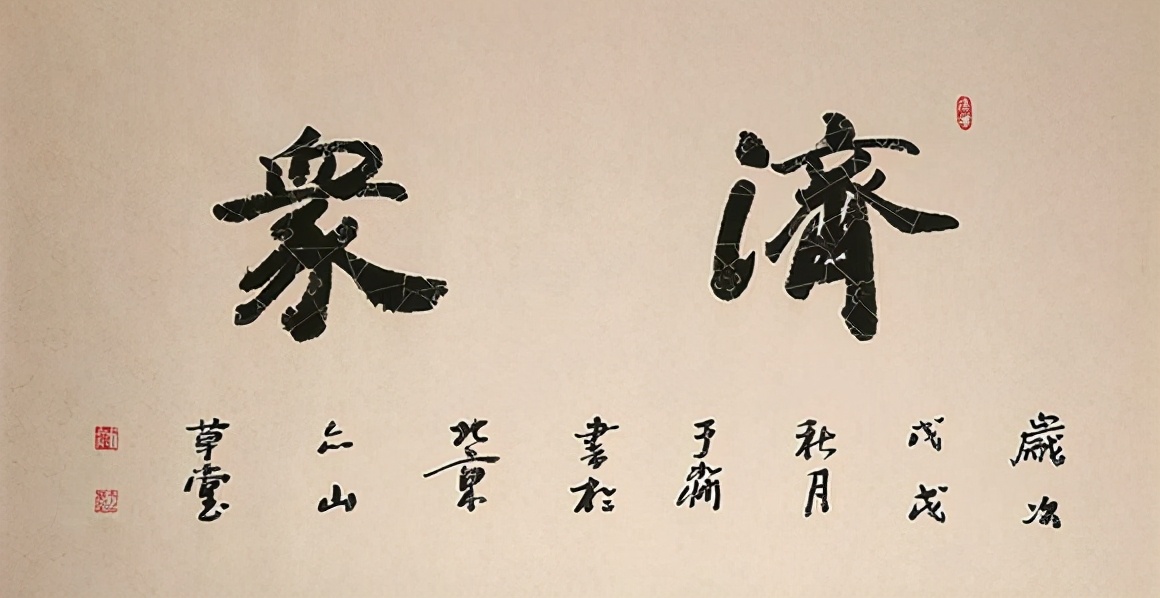 濟衆
歲次
戊戌
秋月
于
書於
北京
山
草堂